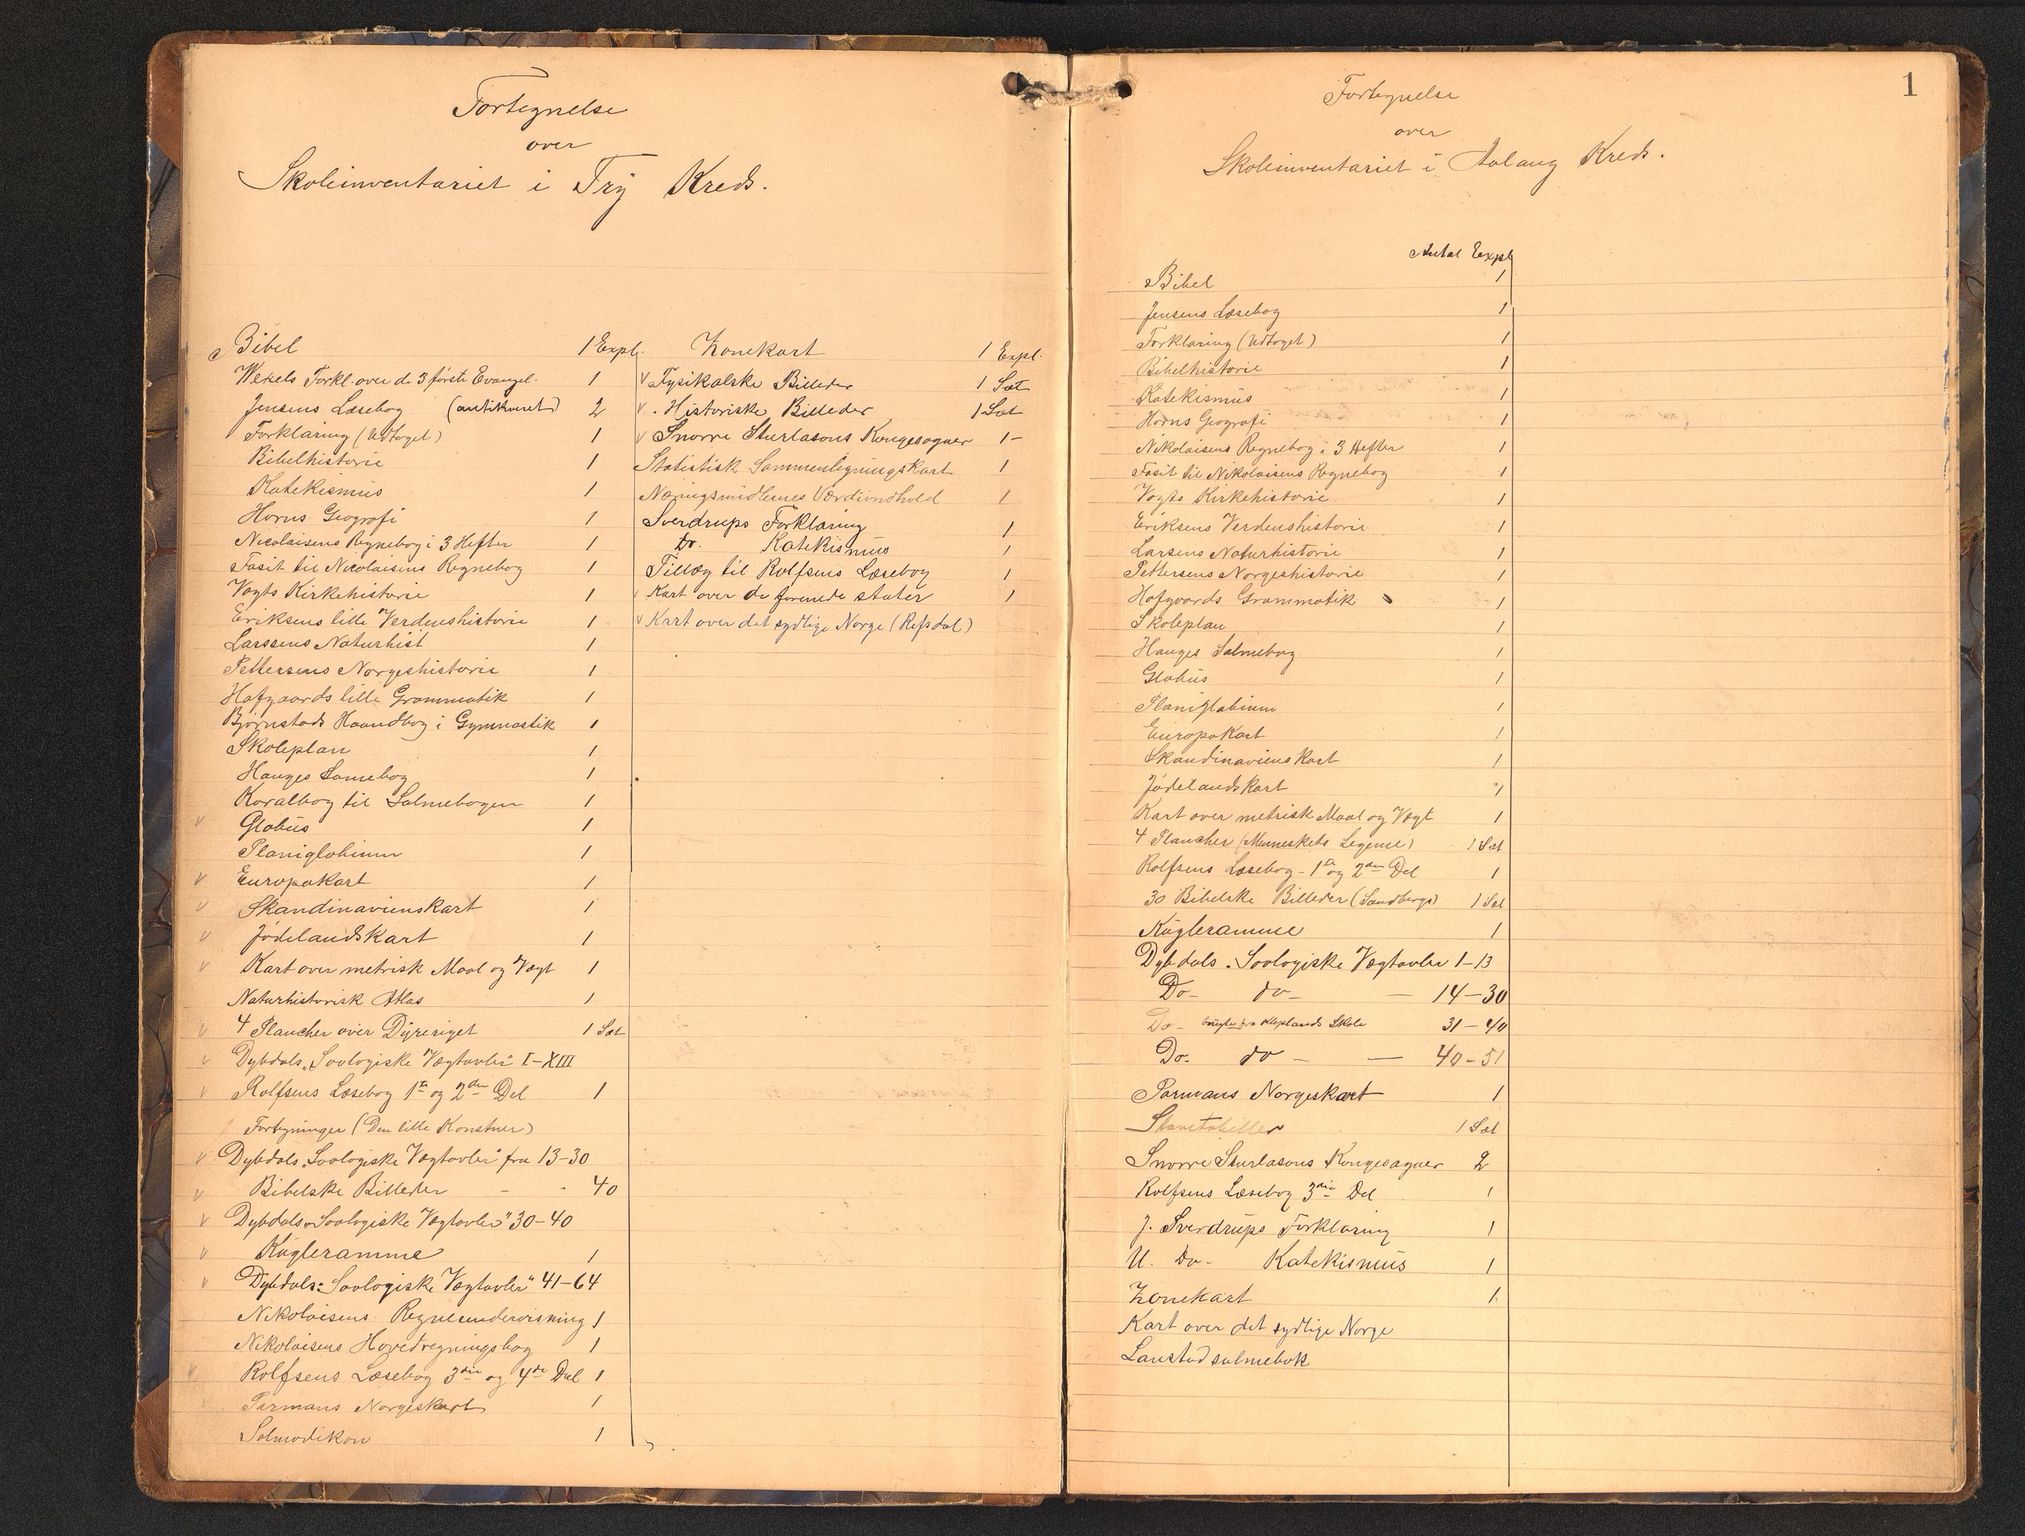 Fortegnelse
over
Skoleinventariet i Try Kreds.
Bibel 1 Expl.
Wexels Forkl. over de 3 første Evangel. 1
Jensens Læsebog (antikveret) 2
Forklaring (Udtoget) 1
Bibelhistorie 1
Katekismus 1
Horns Geografi 1
Nicolaisens Regnebog i 3 Hefter 1
Fasit til Nicolaisens Regnebog 1
Vogts Kirkehistorie 1
Eriksens lille Verdenshistorie 1
Larssens Naturhist 1
Pettersens Norgeshistorie 1
Hofgaards lille Grammatik 1
Bjørnstads Haandbog i Gymnastik 1
Skoleplan 1
Hauges Samebog 1
Koralbog til Salmebogen 1
v Globus 1
Planiglobium 1
v Europakart 1
v Skandinavienskart 1
v Jødelandskart 1
v Kart over metrisk Maal og Vægt 1
Naturhistorisk Atlas 1
v 4 Plancher over Dyreriget 1 Sæt
v Dybdals "Zoologiske Vægtavler" I-XIII
v Rolfsens Læsebog 1ste og 2den Del 1
Fortegninger (Den lille Konstner)
v Dybdals "Zoologiske Vægtavler" fra 13-30
v Bibelske Billeder - - 40
v Dybdals "Zoologiske Vægtavler" 30-40
v Kugleramme 1
v Dybdals "Zoologiske Vægtavler" 41-64
Nikolaisens Regneundervisning 1
Nikolaisens Hovedregningsbog 1
v Rolfsens Læsebog 3die og 4de Del 1
v Parmans Norgeskart 1
Salmodikon 1
Zonekart 1 Expl.
v Fysikalske Billeder 1 Sæt
v Historiske Billeder 1 Sæt
v Snorre Sturlasons Kongesagaer 1-
Statistisk Sammenligningskart 1
Næringsmidlernes Værdiindhold 1
Sverdrups Forklaring 1
Do. Katekismus 1
Tillæg til Rolfsens Læsebog 1
v Kart over de forenede stater 1
v Kart over det sydlige Norge (Refsdal)
1
Fortegnelse
over
Skoleinventariet i Aalaug Kreds.
Antal Expl
Bibel 1
Jensens Læsebog 1
Forklaring (Udtoget) 1
Bibelhistorie 1
Katekismus 1
Horns Geografi 1
Nikolaisens Regnebog i 3 Hefter 1
Fasit til Nikolaisens Regnebog 1
Vogts Kirkehistorie 1
Eriksens Verdenshistorie 1
Larsens Naturhistorie 1
Pettersens Norgeshistorie 1
Hofgaards Grammatik 1
Skoleplan 1
Hauges Salmebog 1
Globus 1
Planiglobium 1
Europakart 1
Skandinavienskart 1
Jødelandskart 1
Kart over metrisk Maal og Vægt 1
4 Plancher (Menneskets Legeme) 1 Sæt
Rolfsens Læsebog - 1ste og 2den Del 1
30 Bibelske Billeder (Sandbergs) 1 Sæt
Kugleramme 1
Dybdals Zoologiske Vægtavler 1-13
Do- do- - 14-30
Do- Skole 31-40
Do- do - - 40-51
Parmans Norgeskart 1
Stavetabeller 1 Sæt
Snorre Sturlasons Kongesagaer 2
Rolfsens Læsebog 3die Del 1
J. Sverdrups Forklaring 1
U. Do- Katekismus 1
Zonekart 1
Kart over det sydlige Norge
Lanstad salmebok